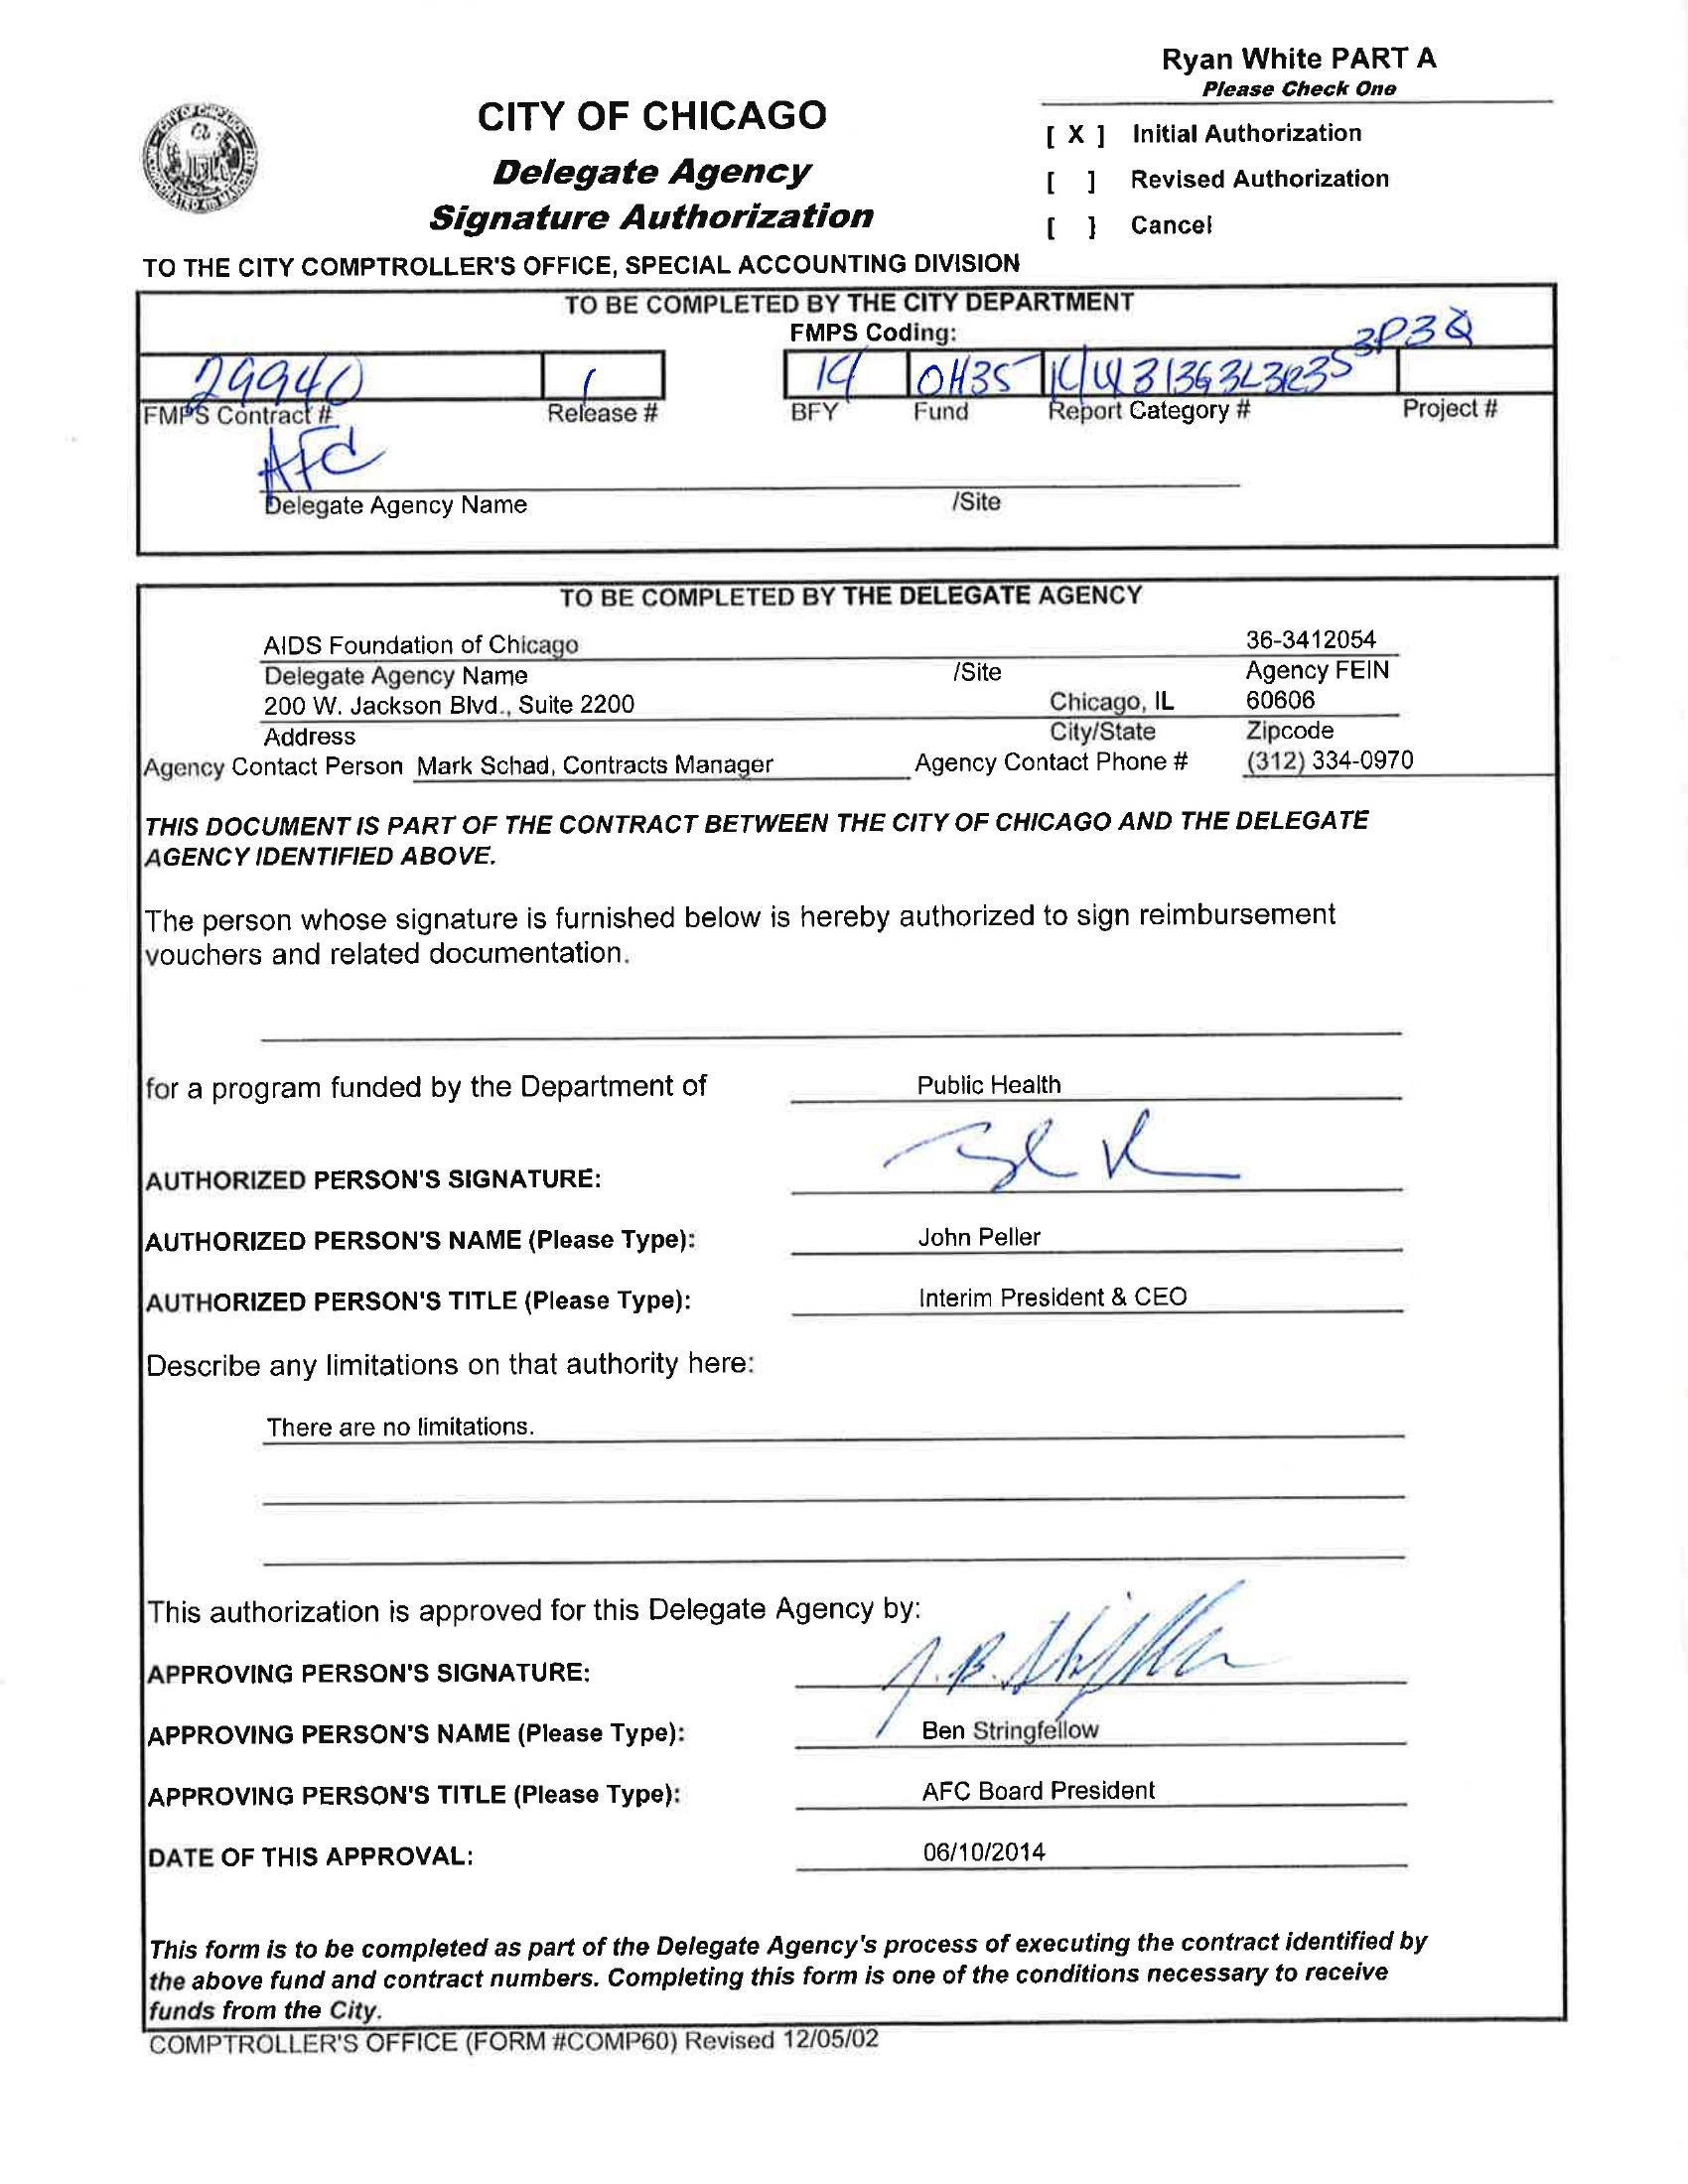 Ryan White PART A
Please Check One
CITY OF CHICAGO
Delegate Agency
Signature Authorization
[ X ] Initial Authorization
[ ] Revised Authorization
[ ] Cancel
TO THE CITY COMPTROLLER'S OFFICE, SPECIAL ACCOUNTING DIVISION
TO BE COMPLETED BY THE CITY DEPARTMENT
FMPS Coding:
29940 1 14 0H35
FMPS Contract # Release # BFY Fund Report Category # Project #
AFC
Delegate Agency Name /Site
TO BE COMPLETED BY THE DELEGATE AGENCY
AIDS Foundation of Chicago 36-3412054
Delegate Agency Name /Site Agency FEIN
200 W. Jackson Blvd., Suite 2200 Chicago, IL 60606
Address City/State Zipcode
Agency Contact Person Mark Schad, Contracts Manager Agency Contact Phone # (312) 334-0970
THIS DOCUMENT IS PART OF THE CONTRACT BETWEEN THE CITY OF CHICAGO AND THE DELEGATE
AGENCY IDENTIFIED ABOVE.
The person whose signature is furnished below is hereby authorized to sign reimbursement
vouchers and related documentation.
for a program funded by the Department of Public Health
AUTHORIZED PERSON'S SIGNATURE:
AUTHORIZED PERSON'S NAME (Please Type): John Peller
AUTHORIZED PERSON'S TITLE (Please Type): Interim President & CEO
Describe any limitations on that authority here:
There are no limitations.
This authorization is approved for this Delegate Agency by:
APPROVING PERSON'S SIGNATURE:
APPROVING PERSON'S NAME (Please Type): Ben Stringfellow
APPROVING PERSON'S TITLE (Please Type): AFC Board President
DATE OF THIS APPROVAL: 06/10/2014
This form is to be completed as part of the Delegate Agency's process of executing the contract identified by
the above fund and contract numbers. Completing this form is one of the conditions necessary to receive
funds from the City.
COMPTROLLER'S OFFICE (FORM #COMP60) Revised 12/05/02